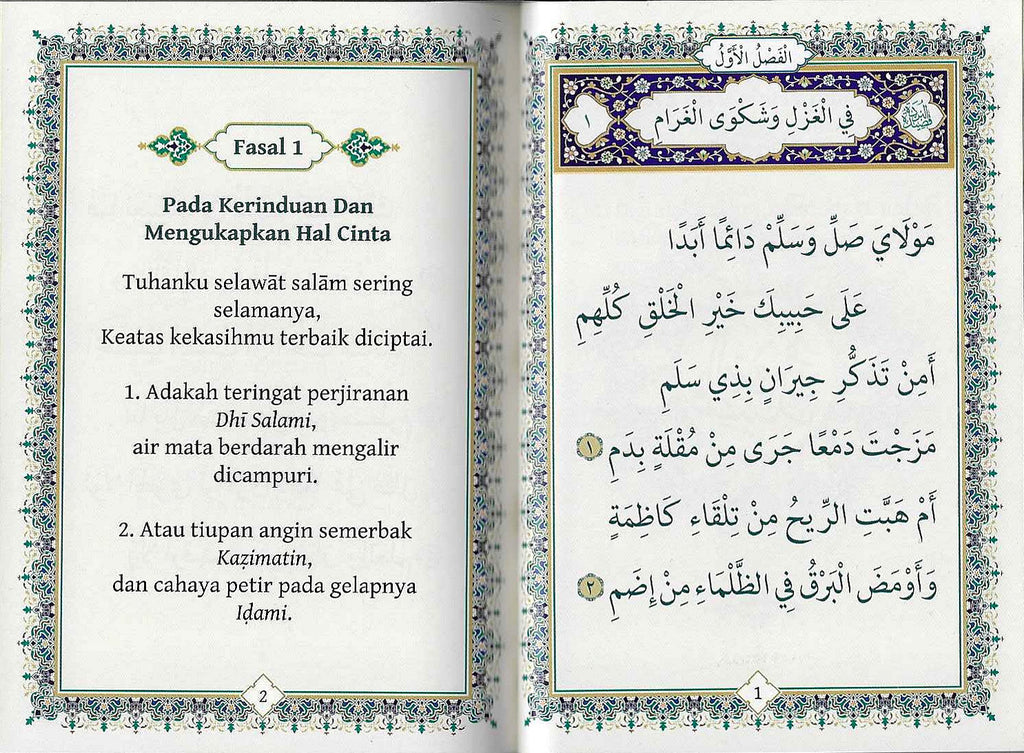 الْفَصْلُ الْأَوَّلُ
فِي الْغَزْلِ وَشَكْوَى الْغَرَامِ
١
مَوْلَايَ صَلِّ وَسَلِّمْ دَائِمًا أَبَدًا
عَلَى حَبِيبِكَ خَيْرِ الْخَلْقِ كُلِّهِمِ
أَمِنْ تَذَكُّرِ جِيرَانٍ بِذِي سَلَمِ
مَزَجْتَ دَمْعًا جَرَى مِنْ مُقْلَةٍ بِدَمِ ١
أَمْ هَبَّتِ الرِّيحُ مِنْ تِلْقَاءِ كَاظِمَةٍ
وَأَوْمَضَ الْبَرْقُ فِي الظَّلْمَاءِ مِنْ إِضَمِ ٢
1
Fasal 1
Pada Kerinduan Dan
Mengukapkan Hal Cinta
Tuhanku selawāt salām sering
selamanya,
Keatas kekasihmu terbaik diciptai.
1. Adakah teringat perjiranan
Dhī Salami,
air mata berdarah mengalir
dicampuri.
2. Atau tiupan angin semerbak
Kaẓimatin,
dan cahaya petir pada gelapnya
Iḍami.
2